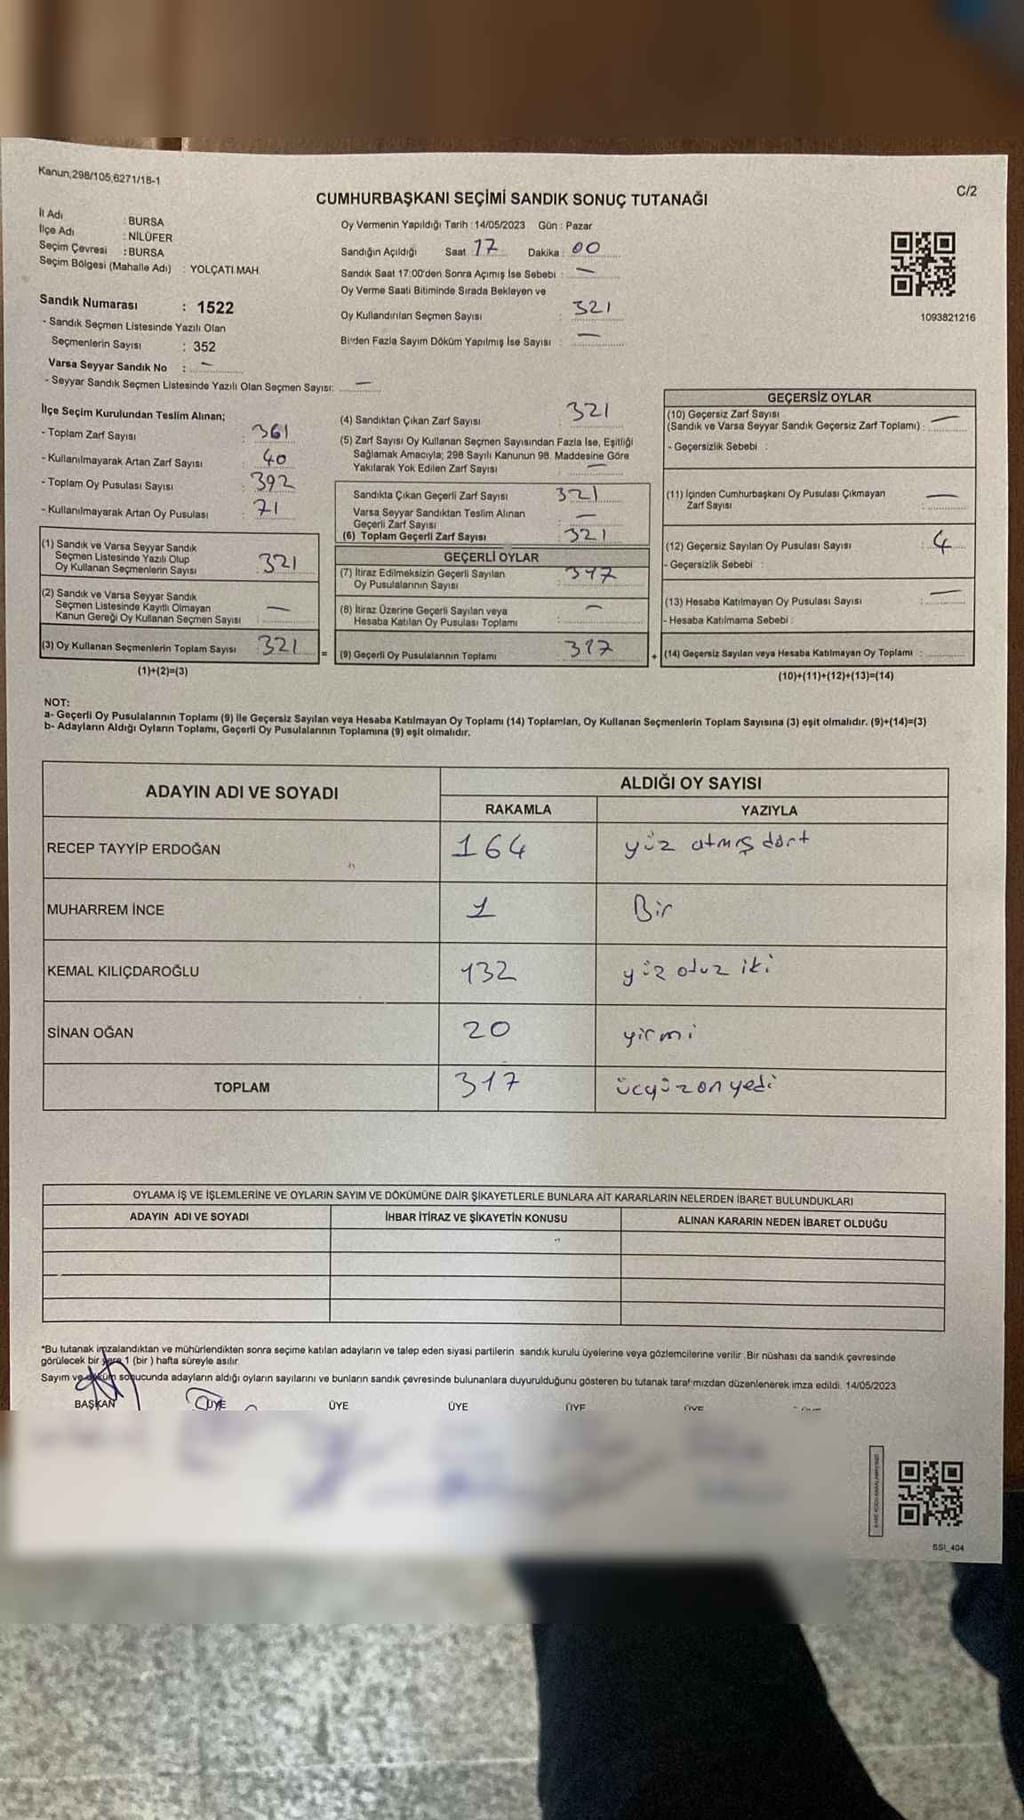 Kanun,298/105,6271/18-1
C/2
CUMHURBAŞKANI SEÇİMİ SANDIK SONUÇ TUTANAĞI
İl Adı : BURSA
İlçe Adı : NİLÜFER
Seçim Çevresi : BURSA
Seçim Bölgesi (Mahalle Adı) : YOLÇATI MAH.
Sandık Numarası : 1522
- Sandık Seçmen Listesinde Yazılı Olan
Seçmenlerin Sayısı : 352
Varsa Seyyar Sandık No : —
- Seyyar Sandık Seçmen Listesinde Yazılı Olan Seçmen Sayısı: —
Oy Vermenin Yapıldığı Tarih : 14/05/2023 Gün : Pazar
Sandığın Açıldığı Saat 17 Dakika : 00
Sandık Saat 17:00'den Sonra Açımış İse Sebebi : —
Oy Verme Saati Bitiminde Sırada Bekleyen ve
Oy Kullandırılan Seçmen Sayısı : 321
Birden Fazla Sayım Döküm Yapılmış İse Sayısı : —
1093821216
İlçe Seçim Kurulundan Teslim Alınan;
- Toplam Zarf Sayısı : 361
- Kullanılmayarak Artan Zarf Sayısı : 40
- Toplam Oy Pusulası Sayısı : 392
- Kullanılmayarak Artan Oy Pusulası : 71
(1) Sandık ve Varsa Seyyar Sandık
Seçmen Listesinde Yazılı Olup
Oy Kullanan Seçmenlerin Sayısı : 321
(2) Sandık ve Varsa Seyyar Sandık
Seçmen Listesinde Kayıtlı Olmayan
Kanun Gereği Oy Kullanan Seçmen Sayısı —
(3) Oy Kullanan Seçmenlerin Toplam Sayısı 321
(1)+(2)=(3)
=
(4) Sandıktan Çıkan Zarf Sayısı 321
(5) Zarf Sayısı Oy Kullanan Seçmen Sayısından Fazla İse, Eşitliği
Sağlamak Amacıyla; 298 Sayılı Kanunun 98. Maddesine Göre
Yakılarak Yok Edilen Zarf Sayısı —
Sandıkta Çıkan Geçerli Zarf Sayısı 321
Varsa Seyyar Sandıktan Teslim Alınan
Geçerli Zarf Sayısı —
(6) Toplam Geçerli Zarf Sayısı 321
GEÇERLİ OYLAR
(7) İtiraz Edilmeksizin Geçerli Sayılan
Oy Pusulalarının Sayısı : 317
(8) İtiraz Üzerine Geçerli Sayılan veya
Hesaba Katılan Oy Pusulası Toplamı : —
(9) Geçerli Oy Pusulalarının Toplamı 317
+
GEÇERSİZ OYLAR
(10) Geçersiz Zarf Sayısı
(Sandık ve Varsa Seyyar Sandık Geçersiz Zarf Toplamı) : —
- Geçersizlik Sebebi :
(11) İçinden Cumhurbaşkanı Oy Pusulası Çıkmayan
Zarf Sayısı : —
(12) Geçersiz Sayılan Oy Pusulası Sayısı : 4
- Geçersizlik Sebebi :
(13) Hesaba Katılmayan Oy Pusulası Sayısı : —
- Hesaba Katılmama Sebebi :
(14) Geçersiz Sayılan veya Hesaba Katılmayan Oy Toplamı :
(10)+(11)+(12)+(13)=(14)
NOT:
a- Geçerli Oy Pusulalarının Toplamı (9) ile Geçersiz Sayılan veya Hesaba Katılmayan Oy Toplamı (14) Toplamları, Oy Kullanan Seçmenlerin Toplam Sayısına (3) eşit olmalıdır. (9)+(14)=(3)
b- Adayların Aldığı Oyların Toplamı, Geçerli Oy Pusulalarının Toplamına (9) eşit olmalıdır.
ADAYIN ADI VE SOYADI
ALDIĞI OY SAYISI
RAKAMLA YAZIYLA
RECEP TAYYİP ERDOĞAN 164 yüz atmış dört
MUHARREM İNCE 1 Bir
KEMAL KILIÇDAROĞLU 132 yüz otuz iki
SİNAN OĞAN 20 yirmi
TOPLAM 317 üçyüz on yedi
OYLAMA İŞ VE İŞLEMLERİNE VE OYLARIN SAYIM VE DÖKÜMÜNE DAİR ŞİKAYETLERLE BUNLARA AİT KARARLARIN NELERDEN İBARET BULUNDUKLARI
ADAYIN ADI VE SOYADI İHBAR İTİRAZ VE ŞİKAYETİN KONUSU ALINAN KARARIN NEDEN İBARET OLDUĞU
*Bu tutanak imzalandıktan ve mühürlendikten sonra seçime katılan adayların ve talep eden siyasi partilerin sandık kurulu üyelerine veya gözlemcilerine verilir. Bir nüshası da sandık çevresinde
görülecek bir yere 1 (bir) hafta süreyle asılır.
Sayım ve döküm sonucunda adayların aldığı oyların sayılarını ve bunların sandık çevresinde bulunanlara duyurulduğunu gösteren bu tutanak tarafımızdan düzenlenerek imza edildi. 14/05/2023
BAŞKAN ÜYE ÜYE ÜYE ÜYE ÜYE
SSI_404